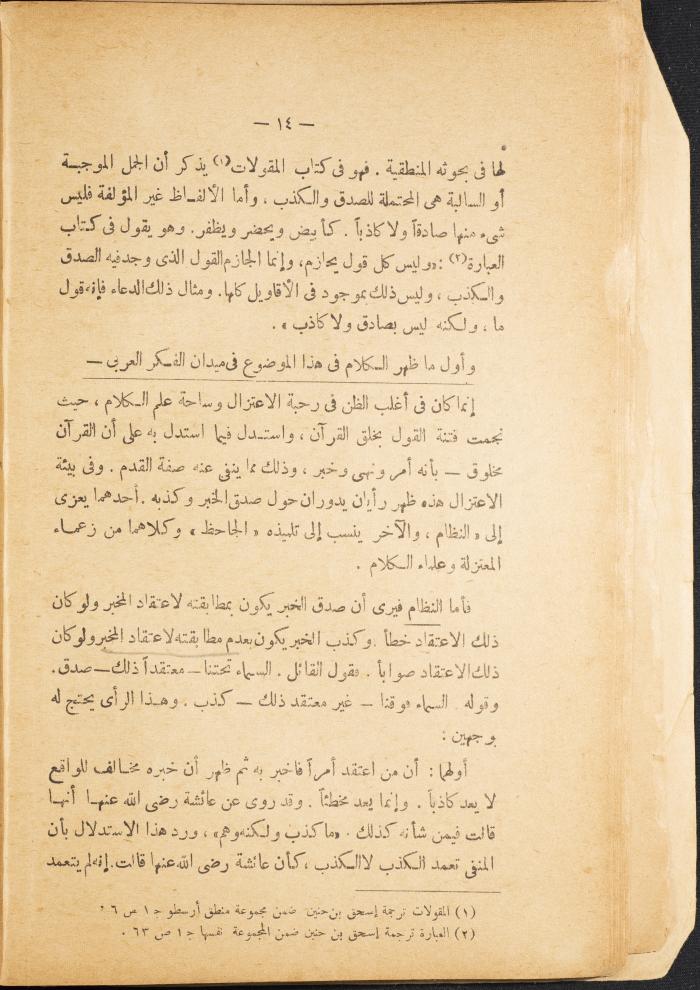 — ١٤ —
لها فى بحوثه المنطقية . فهو فى كتاب المقولات(١) يذكر أن الجمل الموجبة
أو السالبة هى المحتملة للصدق والكذب ، وأما الألفاظ غير المؤلفة فليس
شىء منها صادقاً ولا كاذباً . كأبيض ويحضر ويظفر. وهو يقول فى كتاب
العبارة(٢) : «وليس كل قول بجازم، وإنما الجازم القول الذى وجد فيه الصدق
والكذب ، وليس ذلك بموجود فى الأقاويل كلها. ومثال ذلك الدعاء فإنه قول
ما ، ولكنه ليس بصادق ولا كاذب » .
وأول ما ظهر الكلام فى هذا الموضوع فى ميدان الفكر العربى —
إنما كان فى أغلب الظن فى رحبة الاعتزال وساحة علم الكلام ، حيث
نجمت فتنة القول بخلق القرآن ، واستدل فيما استدل به على أن القرآن
مخلوق — بأنه أمر ونهى وخبر ، وذلك مما ينفى عنه صفة القدم . وفى بيئة
الاعتزال هذه ظهر رأيان يدوران حول صدق الخبر وكذبه . أحدهما يعزى
إلى «النظام ، والآخر ينسب إلى تلميذه «الجاحظ» وكلاهما من زعماء
المعتزلة وعلماء الكلام .
فأما النظام فيرى أن صدق الخبر يكون بمطابقته لاعتقاد المخبر ولو كان
ذلك الاعتقاد خطأ . وكذب الخبر يكون بعدم مطابقته لاعتقاد المخبر ولو كان
ذلك الاعتقاد صواباً . فقول القائل . السماء تحتنا — معتقداً ذلك — صدق.
وقوله . السماء فوقنا — غير معتقد ذلك — كذب . وهذا الرأى يحتج له
بوجهين :
أولهما : أن من اعتقد أمراً فاخبر به ثم ظهر أن خبره مخالف للواقع
لا يعد كاذباً . وإنما يعد مخطئاً . وقد روى عن عائشة رضى الله عنها أنها
قالت فيمن شأنه كذلك . «ما كذب ولكنه وهم» ، ورد هذا الاستدلال بأن
المنفى تعمد الكذب لا الكذب ، كأن عائشة رضى الله عنها قالت. إنه لم يتعمد
(١) المقولات ترجمة إسحق بن حنين ضمن مجموعة منطق أرسطو ج ١ ص ٦ .
(٢) العبارة ترجمة إسحق بن حنين ضمن المجموعة نفسها ج ١ ص ٦٣ .